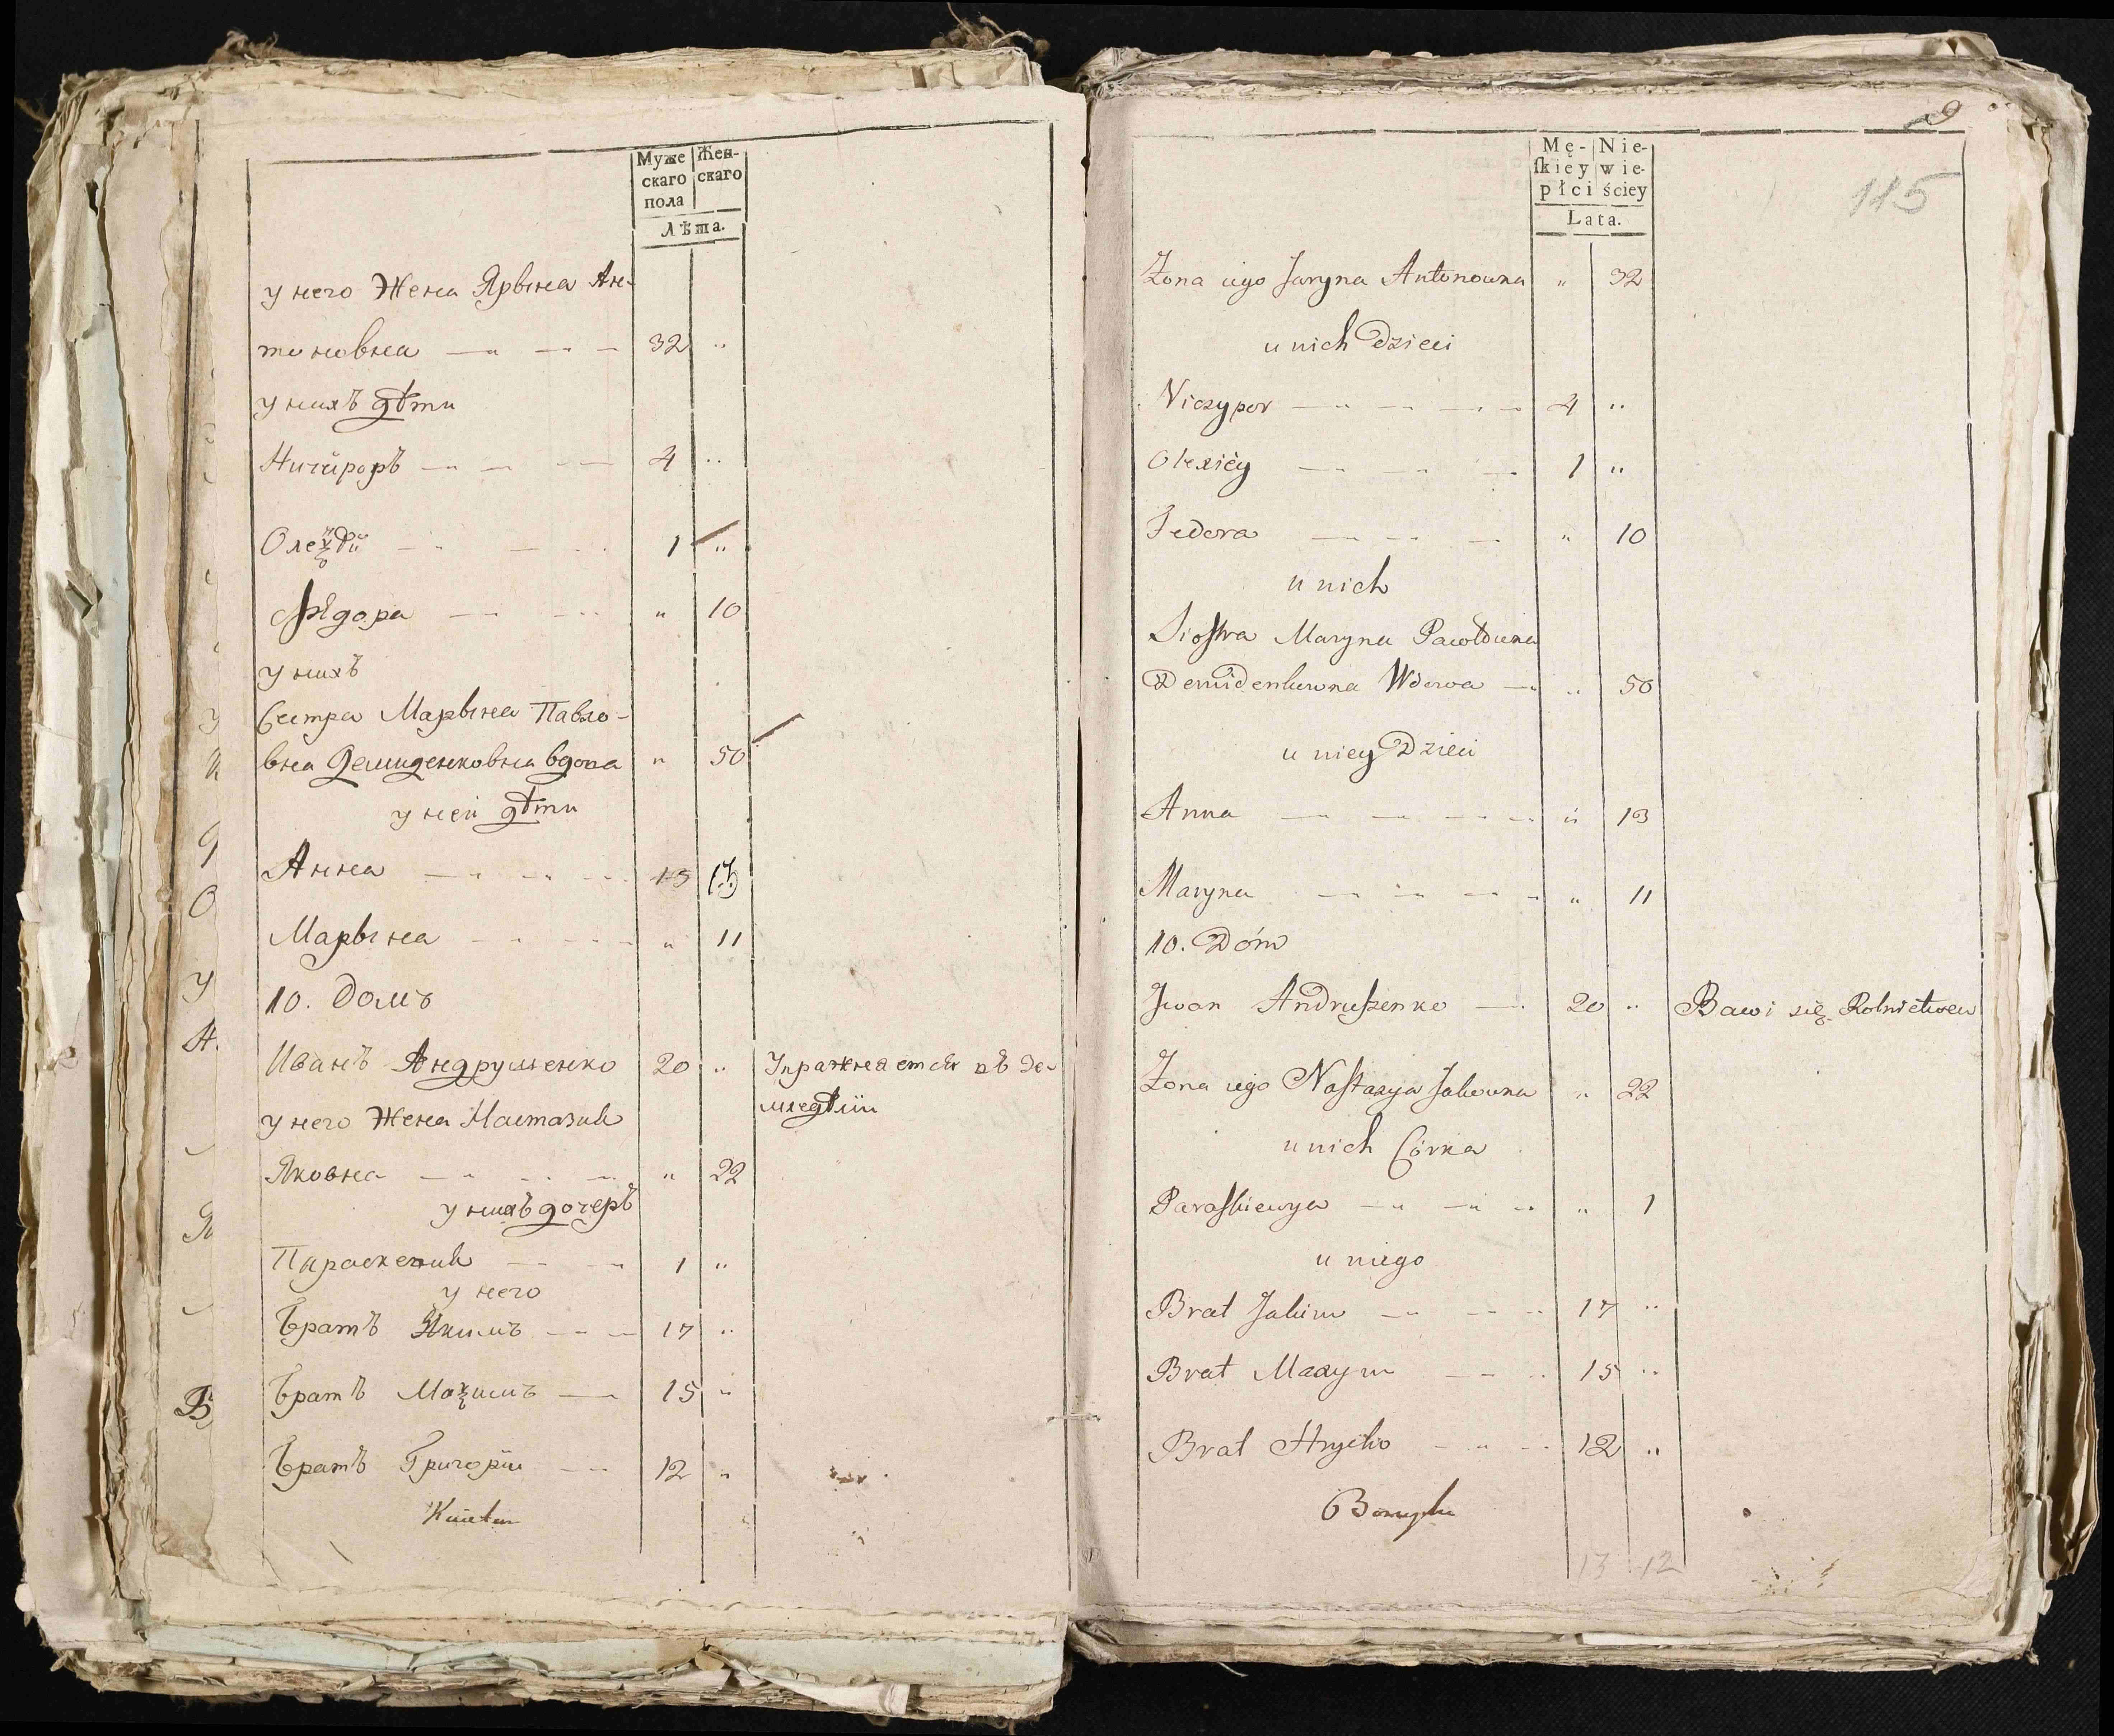 Муже Жен-
скаго скаго
пола
Лѣта.
у него Жена Ярына Ан-
тоновна 32 "
у нихъ дѣти
Ничипоръ 4 "
Олеѯѣй 1 "
Ѳедора " 10
у нихъ
Сестра Марына Павло-
вна Демиденковна вдова " 50
у ней дѣти
Анна 13
Марына " 11
10. Домъ
Иванъ Андрушенко 20 " Упражняется въ Зе-
мледѣліи
у него Жена Настазия
Яковна " 22
у нихъ дочеръ
Параскевия 1 "
у него
Братъ Якимъ 17 "
Братъ Маѯимъ 15 "
Братъ Григорій 12 "
9
115
Mę- Nie-
skiey wie-
płci ściey
Lata.
Żona iego Jaryna Antonowna " 32
u nich Dzieci
Niczypor 4 "
Olexiey 1 "
Fedora " 10
u nich
Siostra Maryna Pawłowna
Demidenkowna Wdowa " 50
u niey Dzieci
Anna " 13
Maryna " 11
10. Dóm
Jwan Andruszenko 20 " Bawi się Rolnictwem
Żona iego Nastazya Jakowna " 22
u nich Córka
Paraskiewya " 1
u niego
Brat Jakim 17 "
Brat Maxym 15 "
Brat Hrycko 12 "
13 12